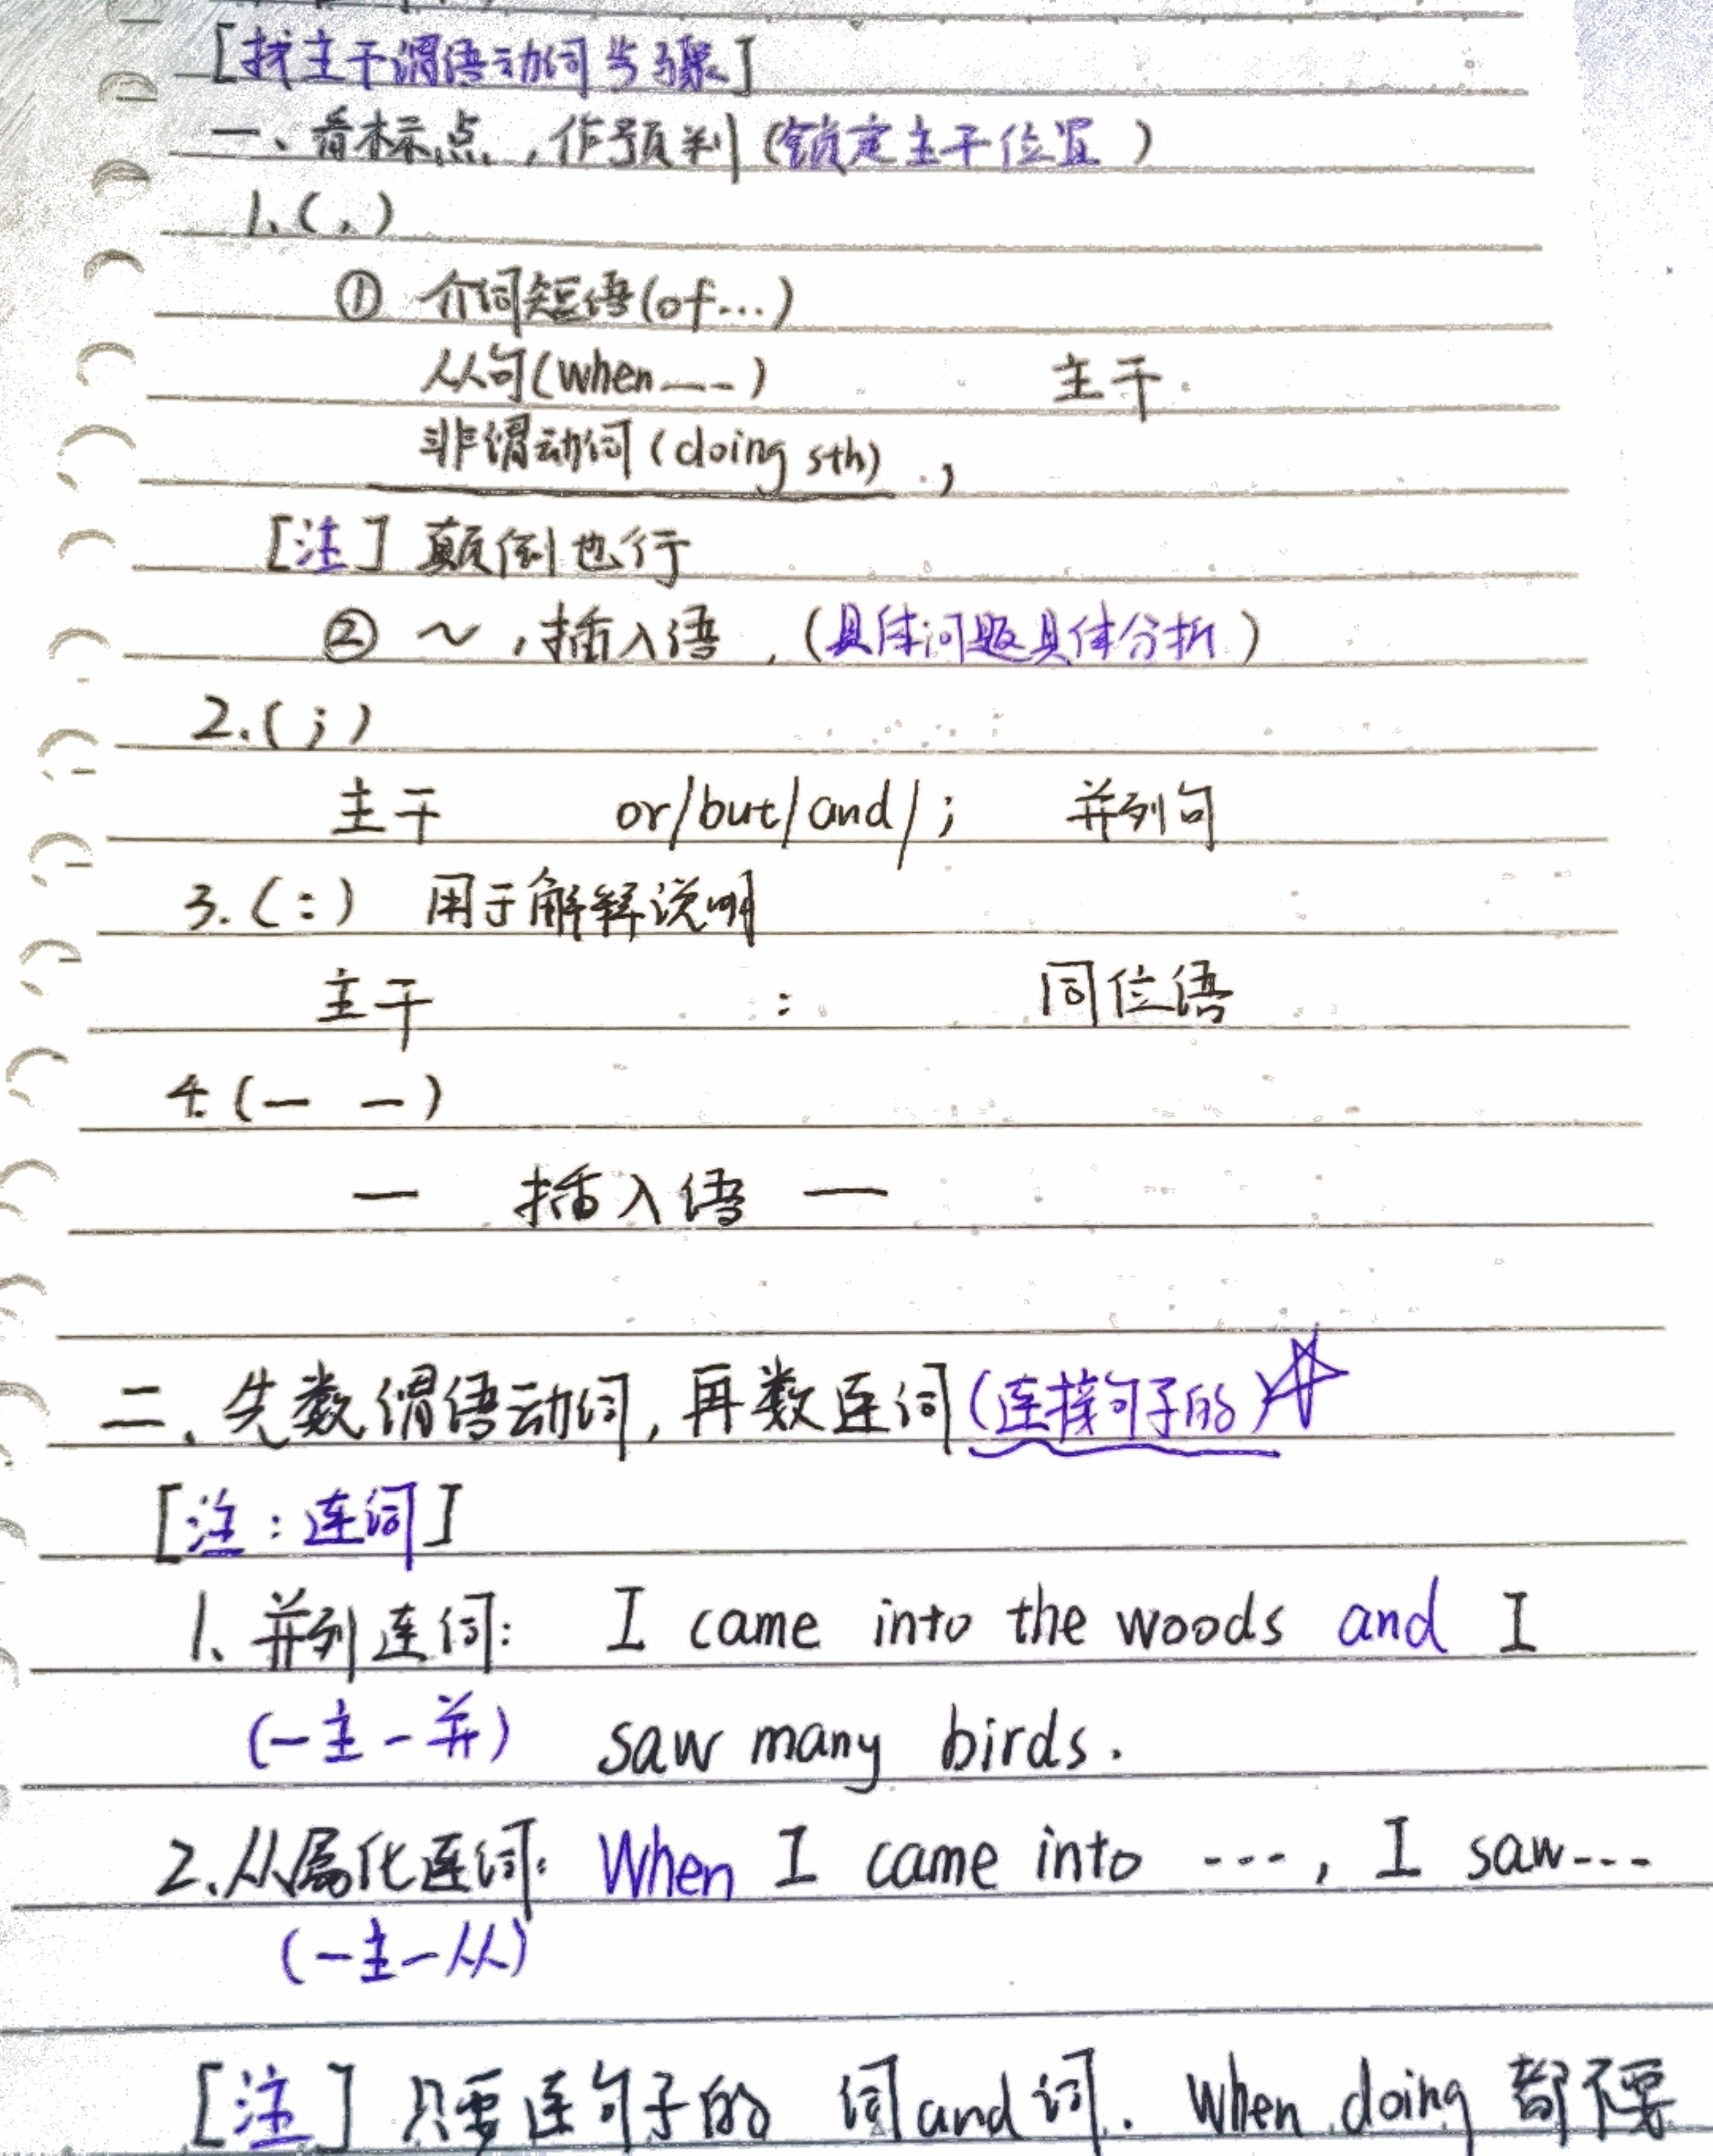 [找主干谓语动词步骤]
一、看标点,作预判(锁定主干位置)
1.(,)
① 介词短语(of...)
从句(when---) 主干
非谓动词(doing sth) ,
[注] 颠倒也行
② ~,插入语,(具体问题具体分析)
2.(;)
主干 or/but/and/; 并列句
3.(:) 用于解释说明
主干 : 同位语
4.(— —)
— 插入语 —
二、先数谓语动词,再数连词(连接句子的)☆
[注:连词]
1、并列连词: I came into the woods and I
(一主一并) saw many birds.
2.从属化连词: When I came into ---, I saw---
(一主一从)
[注] 只要连句子的 词and词. when doing 都不要